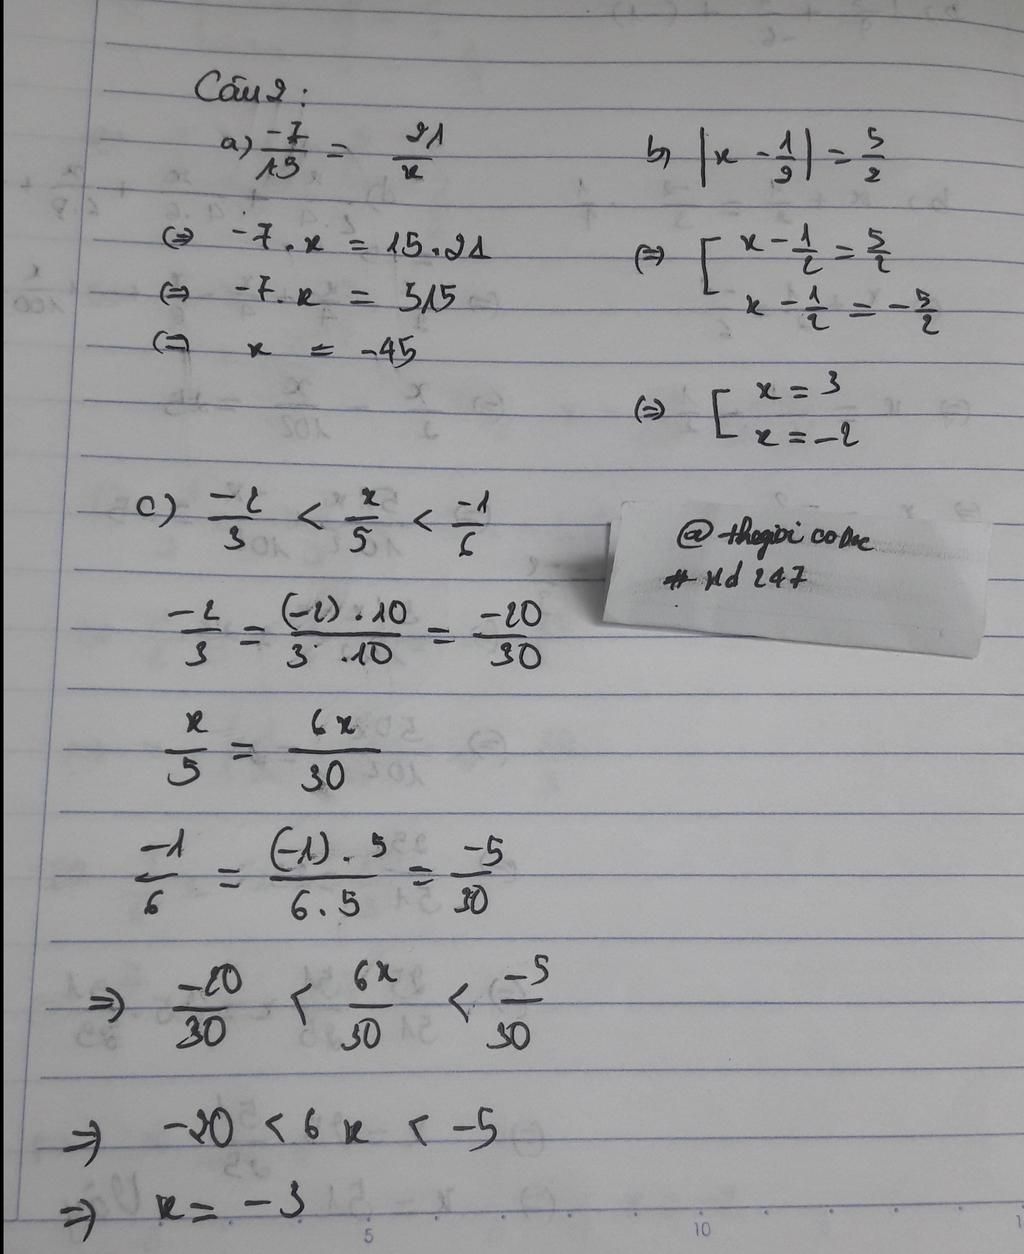 Câu 2:
a) -7/15 = 21/x
(=) -7 . x = 15 . 21
(=) -7 . x = 315
(=) x = -45
b) |x - 1/2| = 5/2
(=) [ x - 1/2 = 5/2
x - 1/2 = -5/2
(=) [ x = 3
x = -2
c) -2/3 < x/5 < -1/6
-2/3 = (-2) . 10 / 3 . 10 = -20/30
x/5 = 6x/30
-1/6 = (-1) . 5 / 6 . 5 = -5/30
=> -20/30 < 6x/30 < -5/30
=> -20 < 6x < -5
=> x = -3
# xd 247
5 10